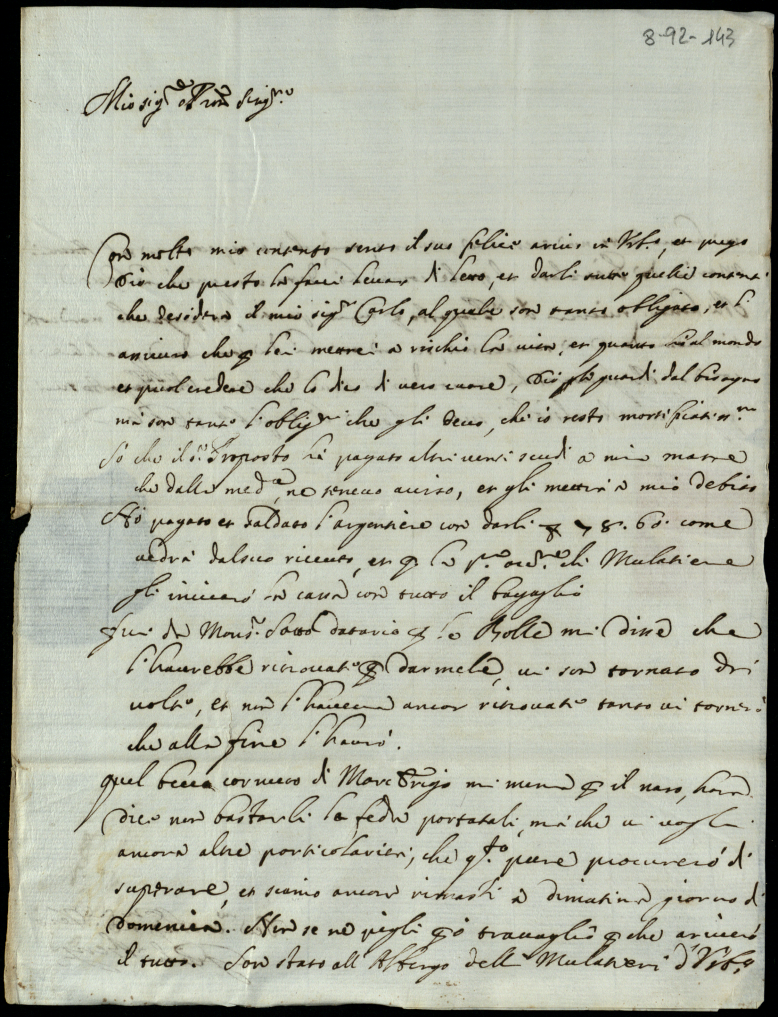 8-92-143
Mio sig.re e Pron Sing.mo
Con molto mio contento sento il suo felice arivo in Urb.o, et prego
Dio che presto la facci levar di letto, et darli tutti quelli contenti
che desidera il mio sig.r Carlo, al quale son tanto obligato, et l'
assicuro che p lei metterei a rischio la vita, et quanto hò al mondo
et puol credere che lo dico di vero cuore, Dio gli guardi dal bisogno
mà son tante l'oblig.ni che gli devo, che io resto mortificatiss.mo
Sò che il s.r Proposto hà pagato altri venti scudi a mia matre
che dalla med.a ne tenevo aviso, et gli metterà a mio debito
Hò pagato et saldato l'argentiere con darli 78. 60. come
vedrà dal suo riceuto, et p la p.a di Mulatiere
gli inviarò la cassa con tutto il bagaglio
fui da Mons.r Sotto datario p le Bolle mi disse che
l'haurebbe ritrovate p darmele, vi son tornato dri
volte, et non l'haveva ancor ritrovate tanto vi tornerò
che alla fine l'haurò.
quel becco cornuto di Marc mi mena p il naso, hora
dice non bastarli la fede portatali, mà che vi vogli
ancora altre particolarità, che q.to pure procurerò di
superare, et siamo ancora rimasti a dimatina giorno di
Domenica. Non se ne pigli p ò travaglio p che arriverò
il tutto. Son stato all'Albergo delli Mulatieri d'Urb.o